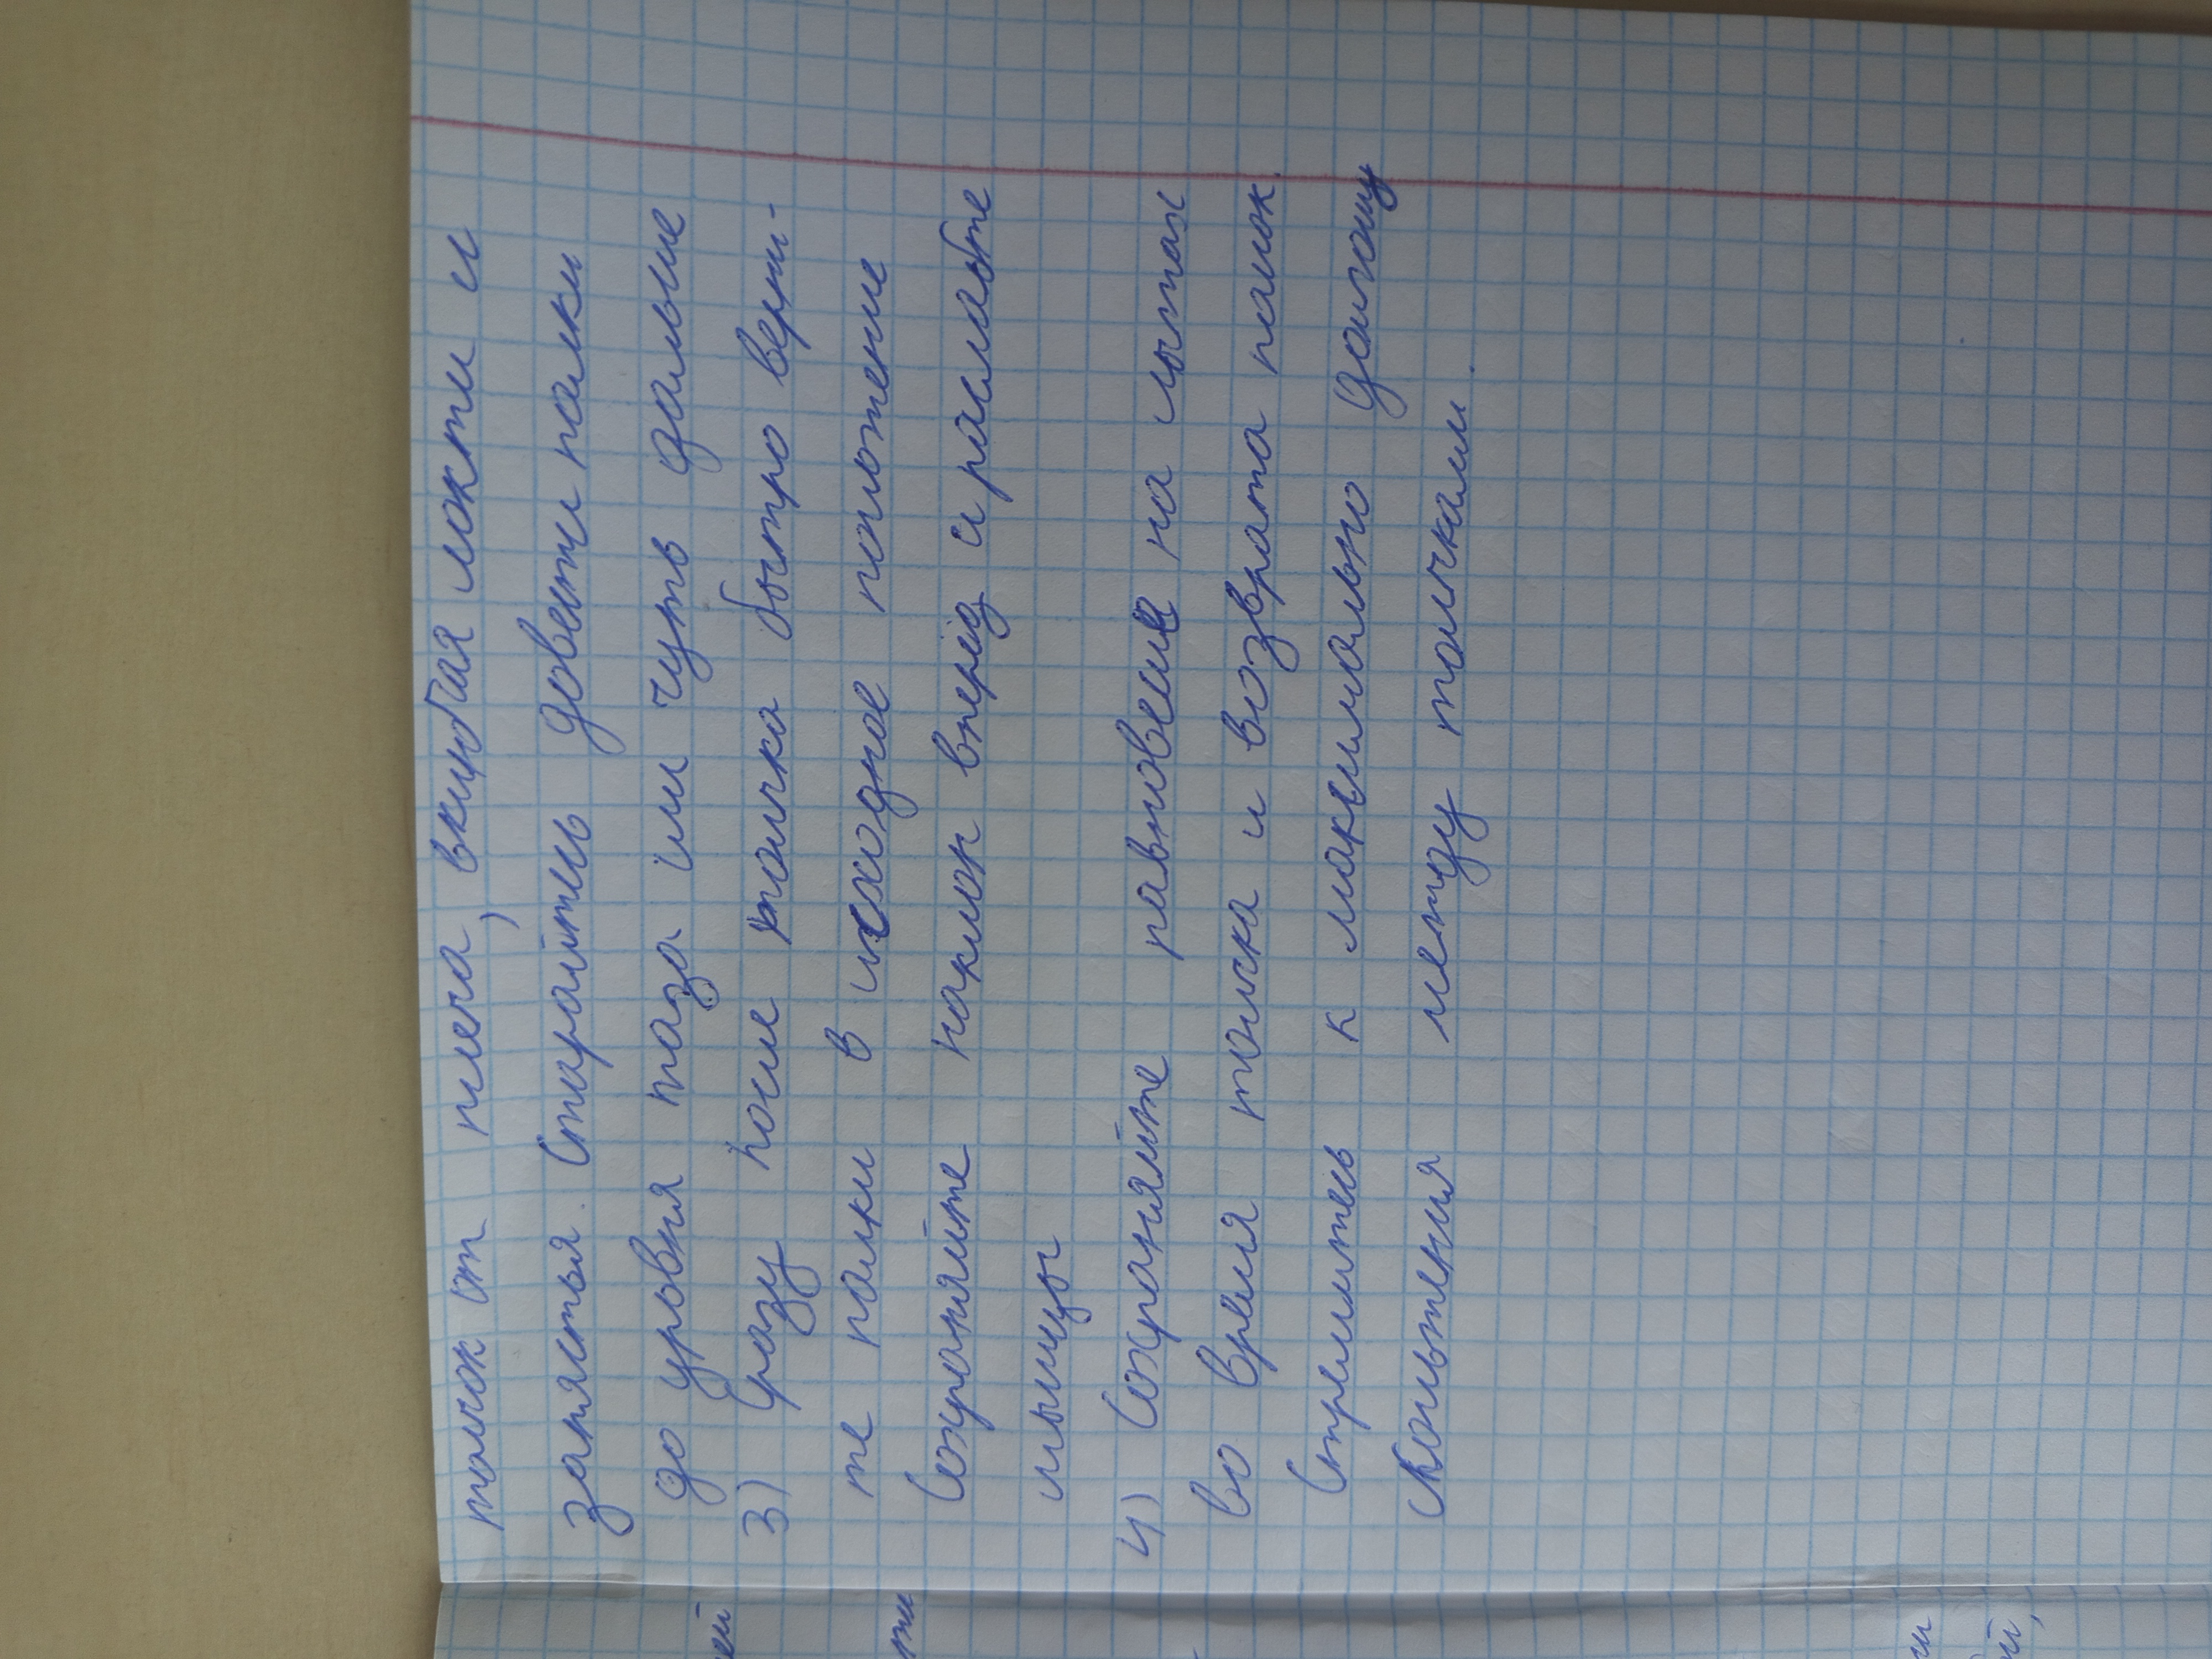 толчок от плеча, вкючая локти и
запястья. Старайтесь довести палки
до уровня таза или чуть дальше
3) Сразу после толчка быстро верни-
те палки в исходное положение
Сохраняйте наклон вперёд и расслабте
мышцы
4) Сохраняйте равновесие на лыжах
во время толчка и возврата палок.
Стремитесь к максимально долгому
скольжения между толчками.
ей
ти
ий,